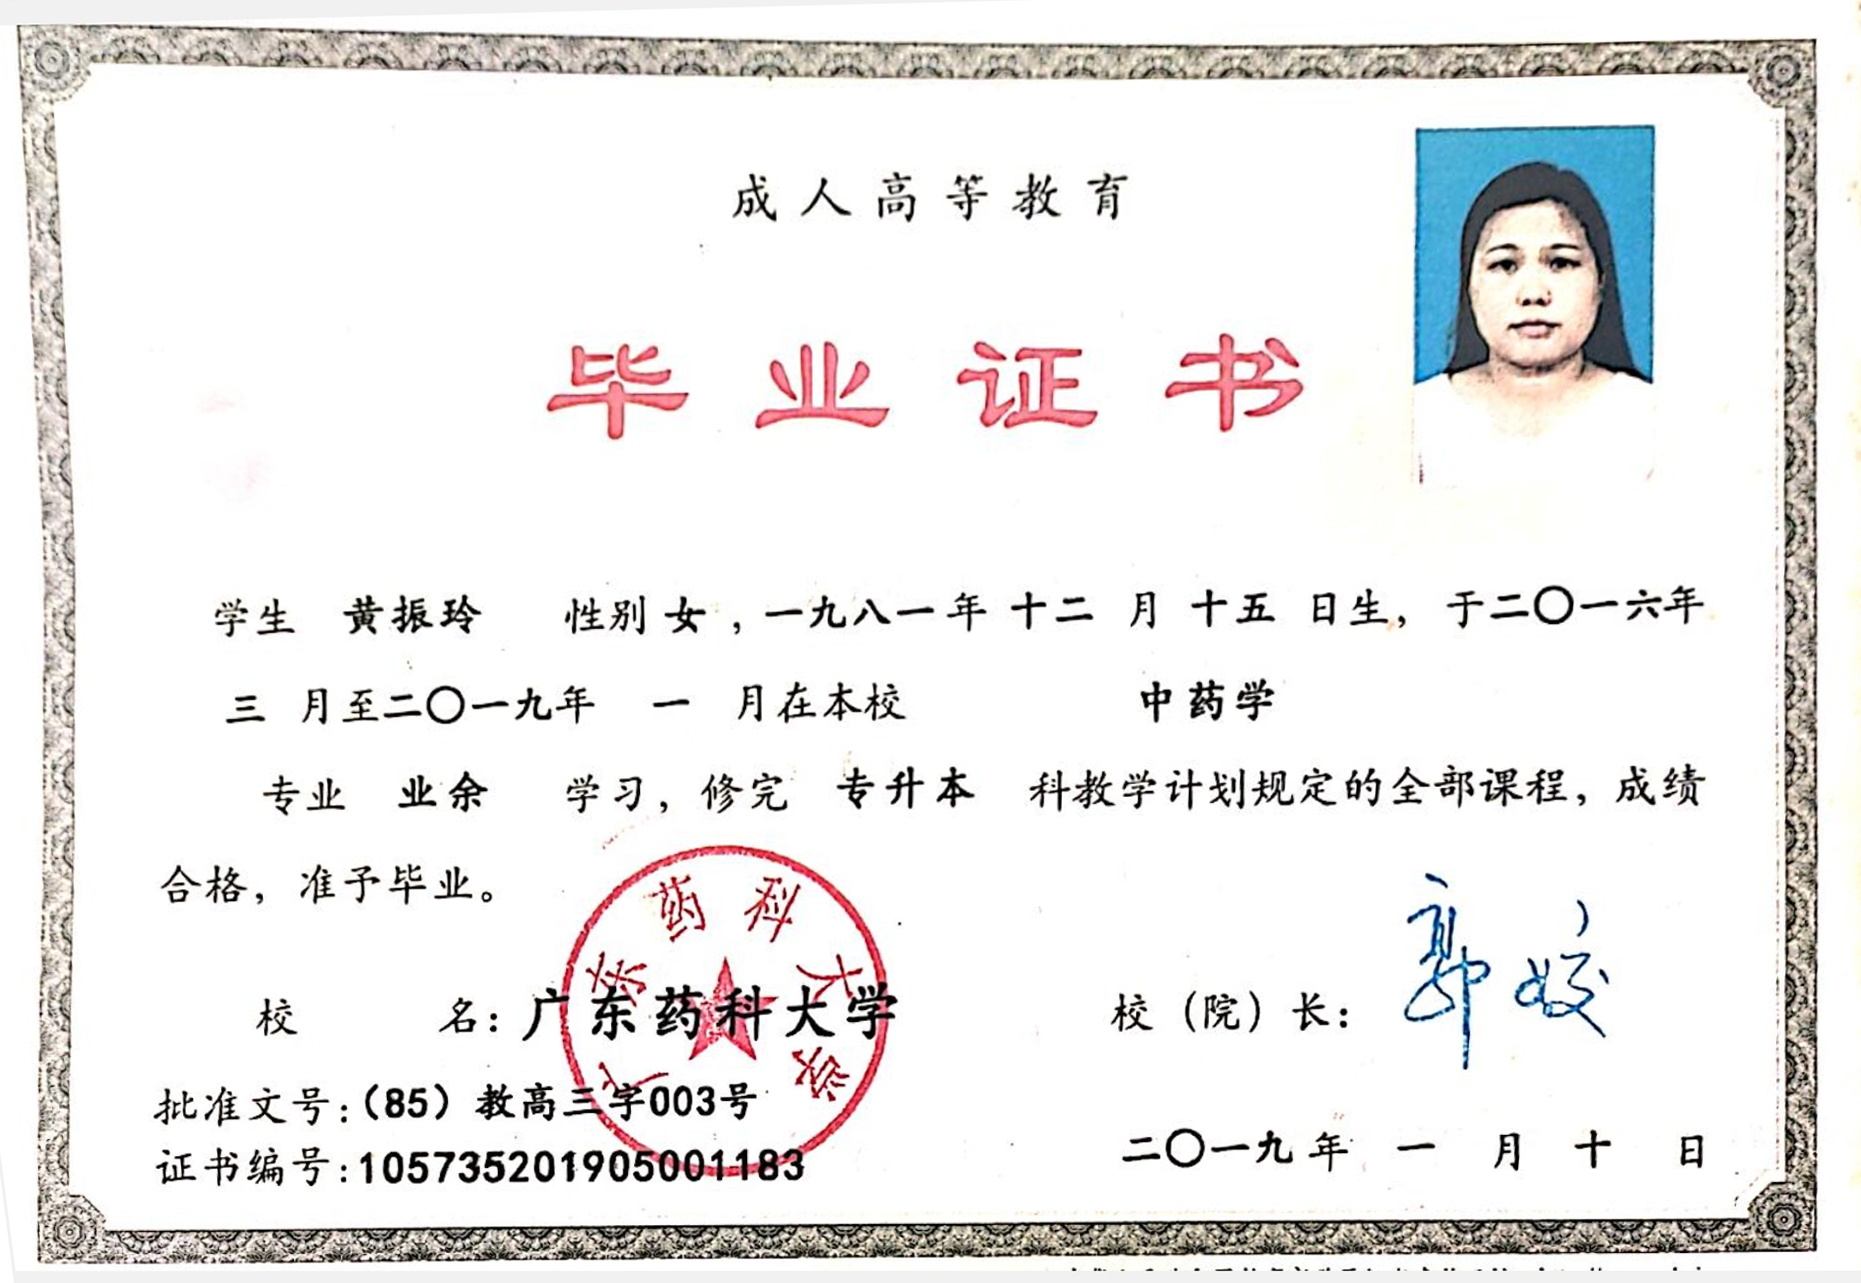 成人高等教育
毕业证书
学生 黄振玲 性别 女，一九八一年 十二 月 十五 日生，于二〇一六年
三 月至二〇一九年 一 月在本校 中药学
专业 业余 学习，修完 专升本 科教学计划规定的全部课程，成绩
合格，准予毕业。
广东药科大学
校 名：广东药科大学
校（院）长：郭姣
批准文号：（85）教高三字003号
证书编号：105735201905001183
二〇一九年 一 月 十 日